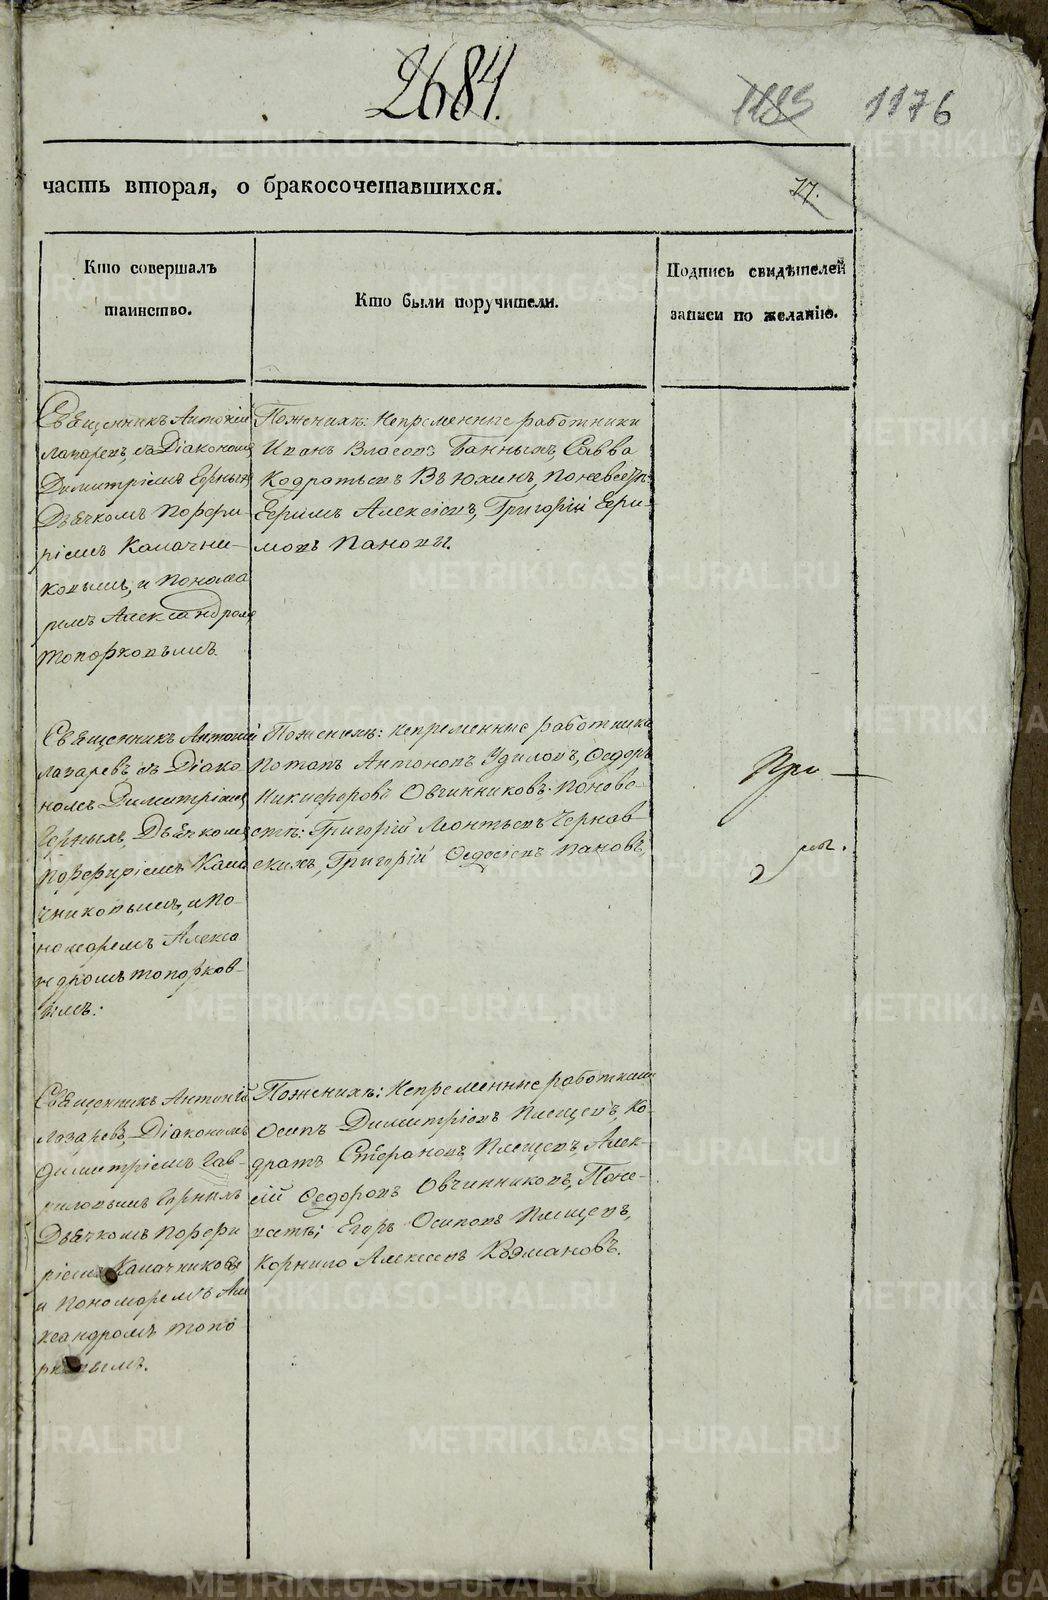 2684.
1183 1176
часть вторая, о бракосочетавшихся.
77.
Кто совершалъ
таинство.
Кто были поручители.
Подпись свидѣтелей
записи по желанію.
Священникъ Антоній
Лазаревъ, съ Діакономъ
Димитріемъ Чернымъ
Дьячкомъ Порфи-
ріемъ Калачни-
ковымъ, и понома
ремъ Александромъ
Топорковымъ.
Пожених: Непременные работники
Иванъ Власовъ Банныхъ, Савва
Кодратьевъ Вьюхинъ, поневестѣ:
Ефимъ Алексіевъ, Григорій Ефи-
мовъ Пановы.
Священникъ Антоній
Лазаревъ съ Діако
номъ Димитріемъ
Чернымъ, Дьячкомъ
Порфиріемъ Кала
чниковымъ, и По-
номаремъ Алекса
ндромъ Топорков-
ымъ.
Поженихѣ: непременные работники
Потапъ Антоновъ Удиловъ, Ѳедоръ
Никифоровъ Овчинниковъ. Поневе-
стѣ: Григорій Леонтьевъ Чернов-
скихъ, Григорій Ѳедосіевъ Пановъ,
При
Священникъ Антоній
Лазаревъ, Діакономъ
Димитріемъ Гав-
риловымъ Чернымъ
Дьячкомъ Порфи
ріемъ Калачниковы
и Пономоремъ Але
ксандромъ Топо
рковымъ.
Поженихѣ: Непременные работники
Осипъ Димитріевъ Плещевъ, Ко-
дратъ Стефановъ Плещевъ, Алек-
сій Ѳедоровъ Овчинниковъ, Поне-
вестѣ; Егоръ Осиповъ Плещевъ,
Корнило Алексеевъ Козмановъ.
METRIKI.GASO-URAL.RU